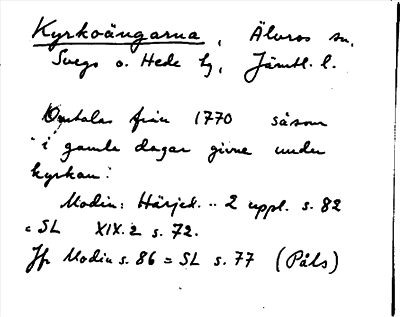 Kyrkoängarna, Älvros sn,
Svegs o. Hede tg, Jämtl. l.
Omtalas från 1770 såsom
"i gamla dagar givne under
kyrkan".
Modin: Härjed. .. 2 uppl. s. 82
= SL XIX.2 s. 72.
Jfr Modin s. 86 = SL s. 77 (Påls)